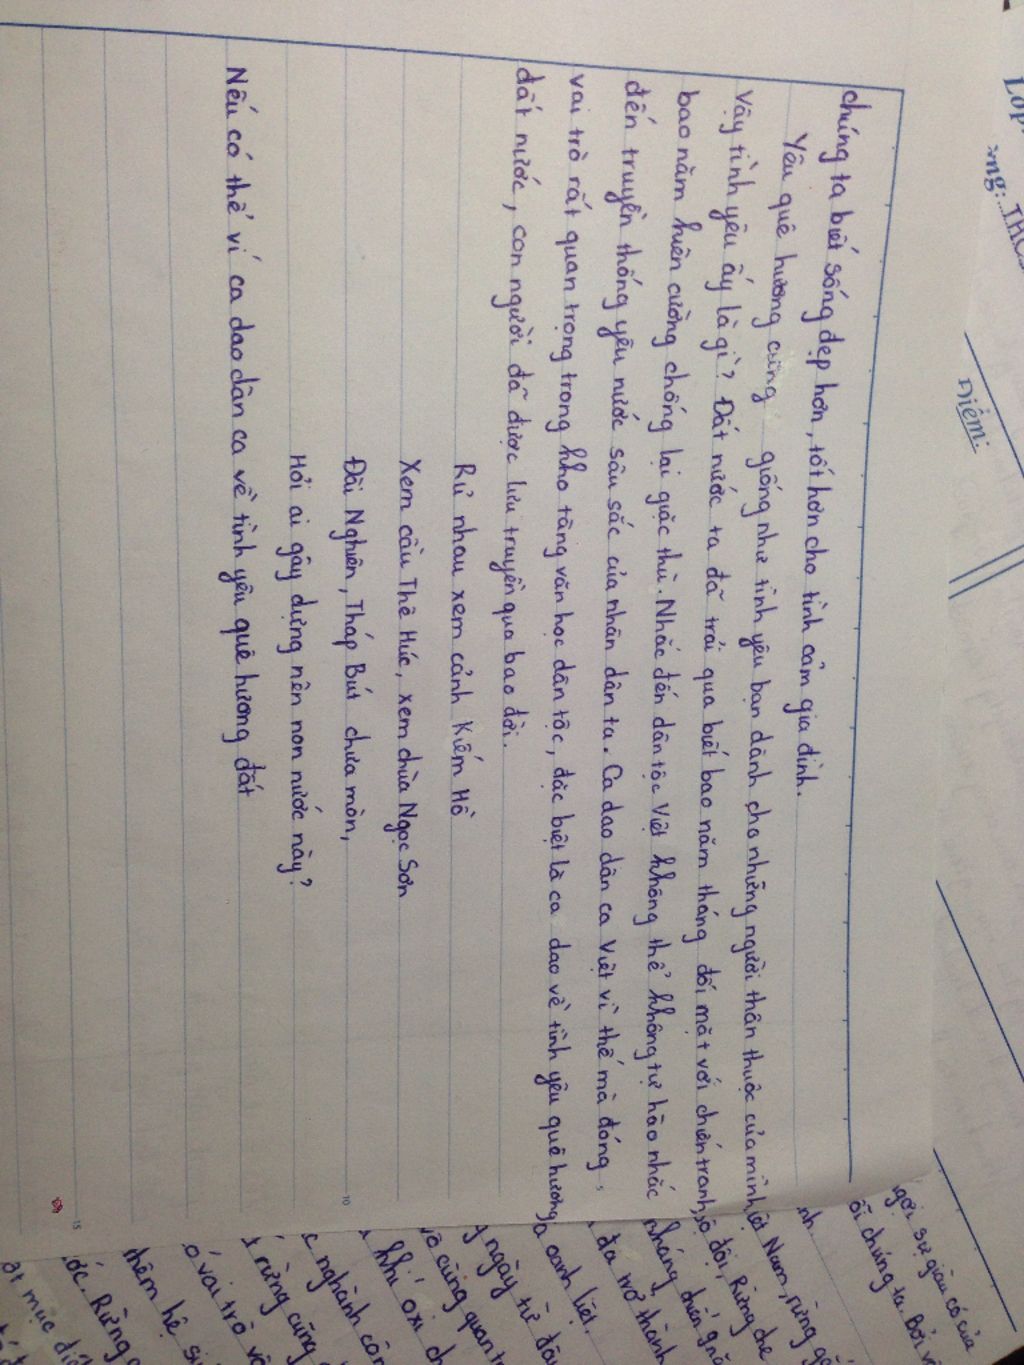 chúng ta biết sống đẹp hơn, tốt hơn cho tình cảm gia đình.
Yêu quê hương cũng giống như tình yêu bạn dành cho những người thân thuộc của mình
vậy tình yêu ấy là gì? Đất nước ta đã trải qua biết bao năm tháng đối mặt với chiến tranh,
bao năm kiên cường chống lại giặc thù. Nhắc đến dân tộc Việt không thể không tự hào nhắc
đến truyền thống yêu nước sâu sắc của nhân dân ta. Ca dao dân ca Việt vì thế mà đóng
vai trò rất quan trọng trong kho tàng văn học dân tộc, đặc biệt là ca dao về tình yêu quê hương
đất nước, con người đã được lưu truyền qua bao đời.
Rủ nhau xem cảnh Kiếm Hồ
Xem cầu Thê Húc, xem chùa Ngọc Sơn
Đài Nghiên, Tháp Bút chưa mòn,
Hỏi ai gây dựng nên non nước này?
Nếu có thể ví ca dao dân ca về tình yêu quê hương đất
5
10
15
Lớp
THCS
Điểm:
sự giàu có của
chúng ta. Bởi
Nam, rừng
đội, Rừng che
đã trở thành
oanh liệt.
ngày từ
vô cùng quan
khí oxi
nghành
rừng cũng
vai trò
thêm hệ
Rừng